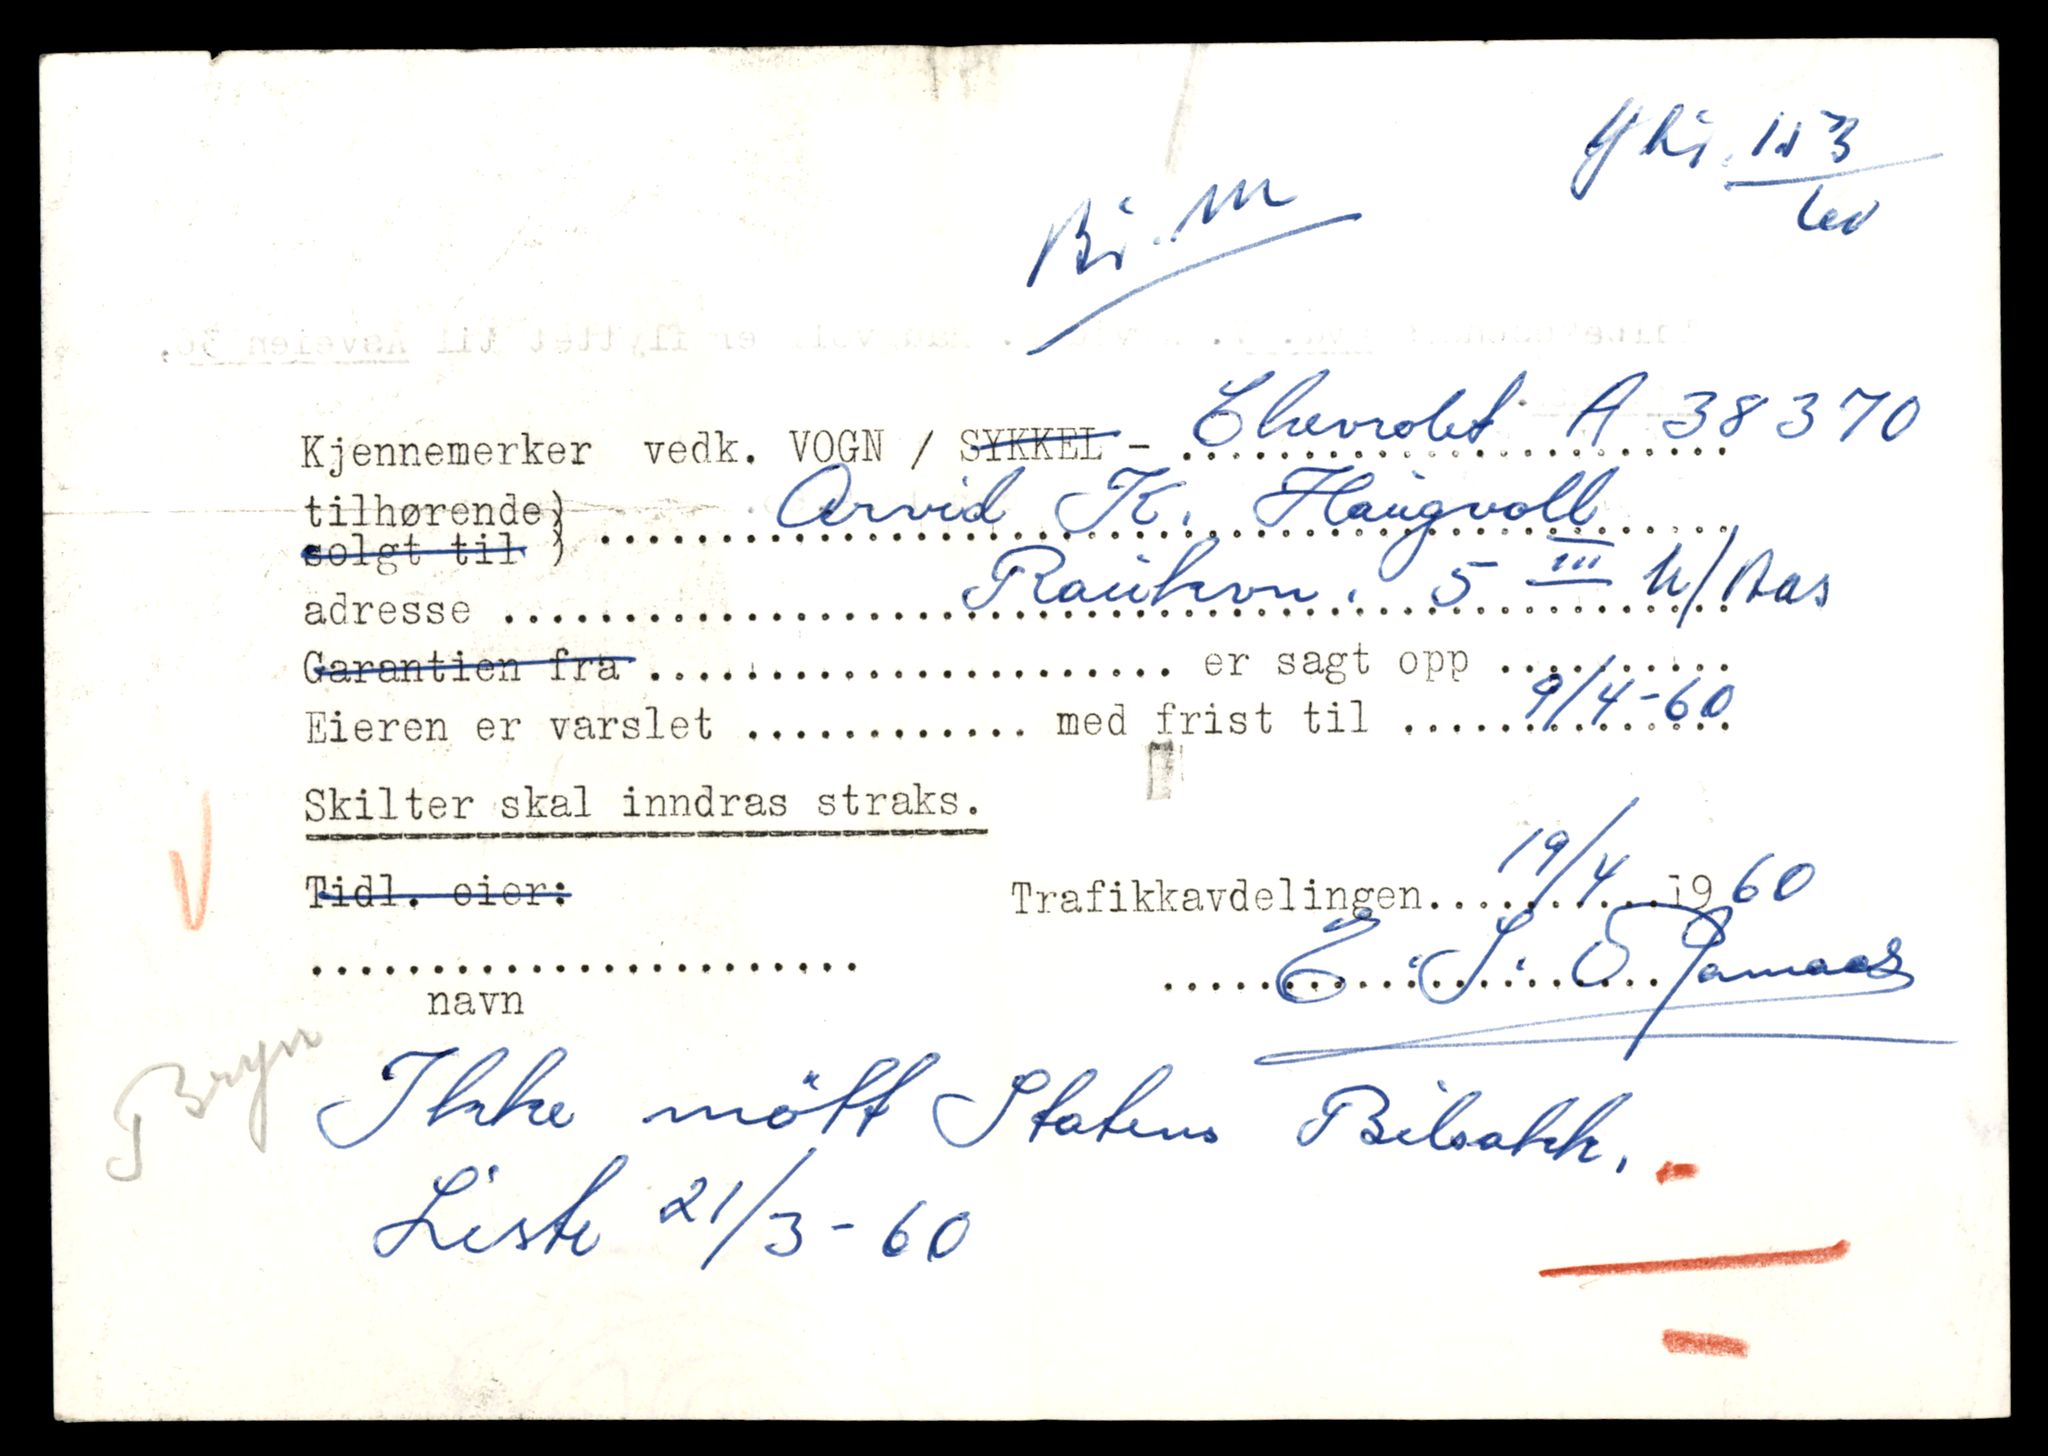 Bi. M
Kjennemerker vedk. VOGN / SYKKEL - Chevrolet A 38370
tilhørende) Arvid K. Haugvoll
solgt til )
adresse .......... Raukvn. 5 III
Garantien fra .......... er sagt opp ..........
Eieren er varslet .......... med frist til 9/4-60
Skilter skal inndras straks.
Tidl. eier:
Trafikkavdelingen 19/4 1960
navn
Bryn
Ikke mött Statens Bilsakk.
Liste 21/3-60